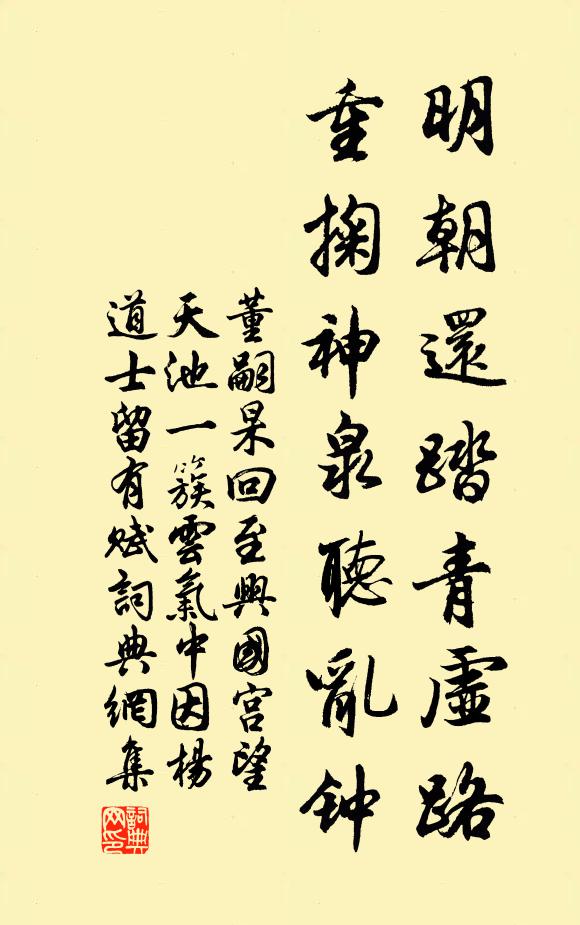 明朝還踏青虛路
重掬神泉聽亂钟
董嗣杲回至興國宫望
天池一簇雲氣中因楊
道士留有赋詞典網集
詞典网印